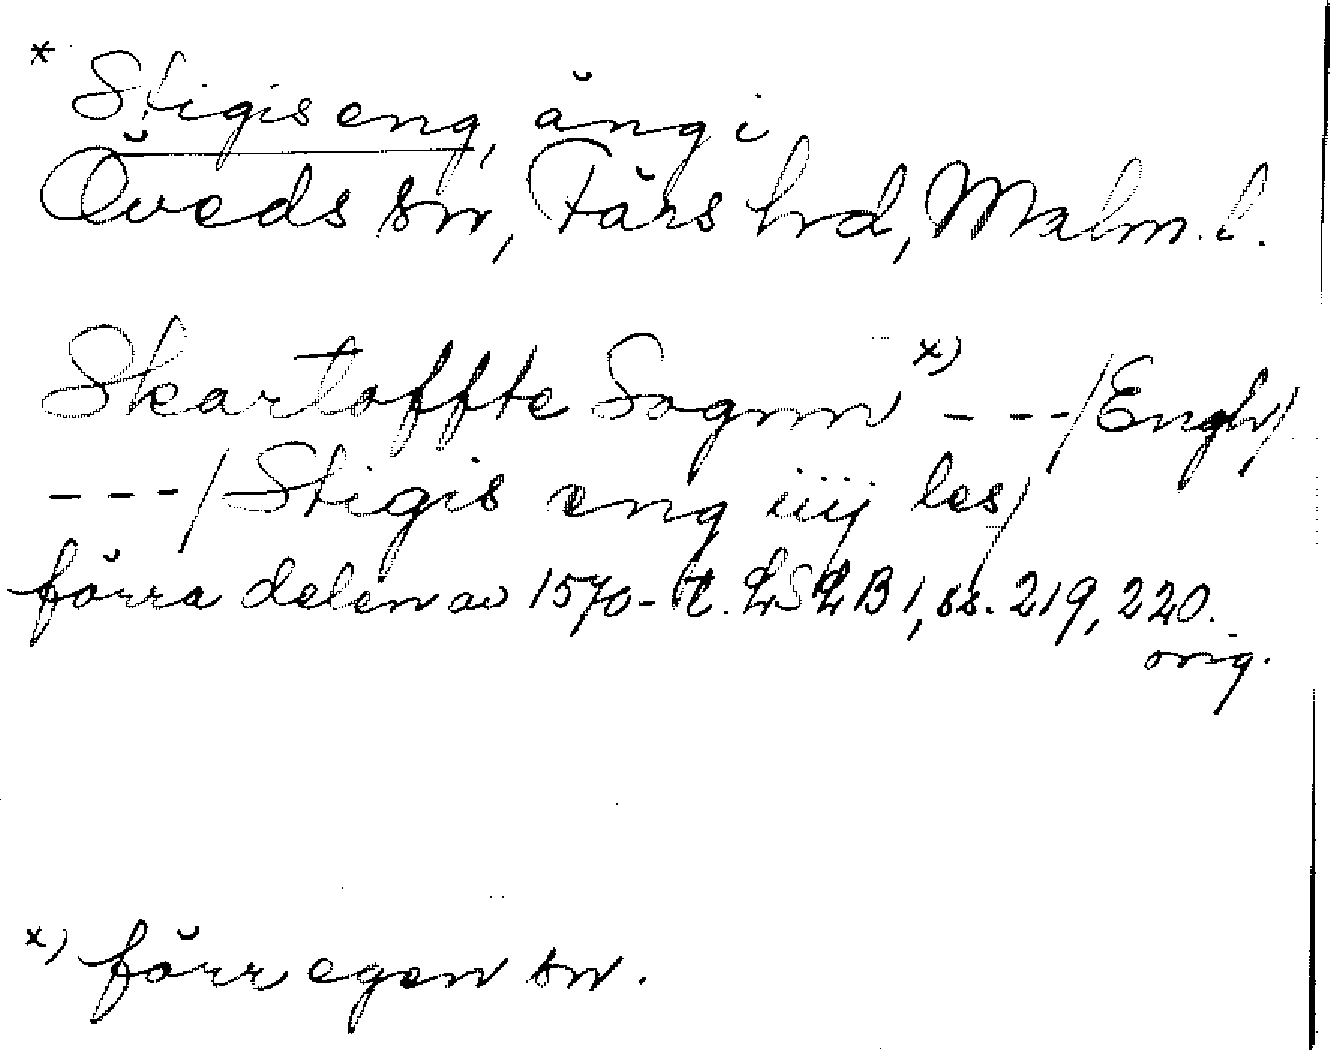 * Stigis eng, äng i
Öveds sn, Färs hd, Malm. l.
Skartoffte Sognn x) - - - /Engh/
- - - /Stigis eng iiij les/
förra delen av 1570-t. LSLB 1, ss. 219, 220.
orig.
x) förr egen sn.